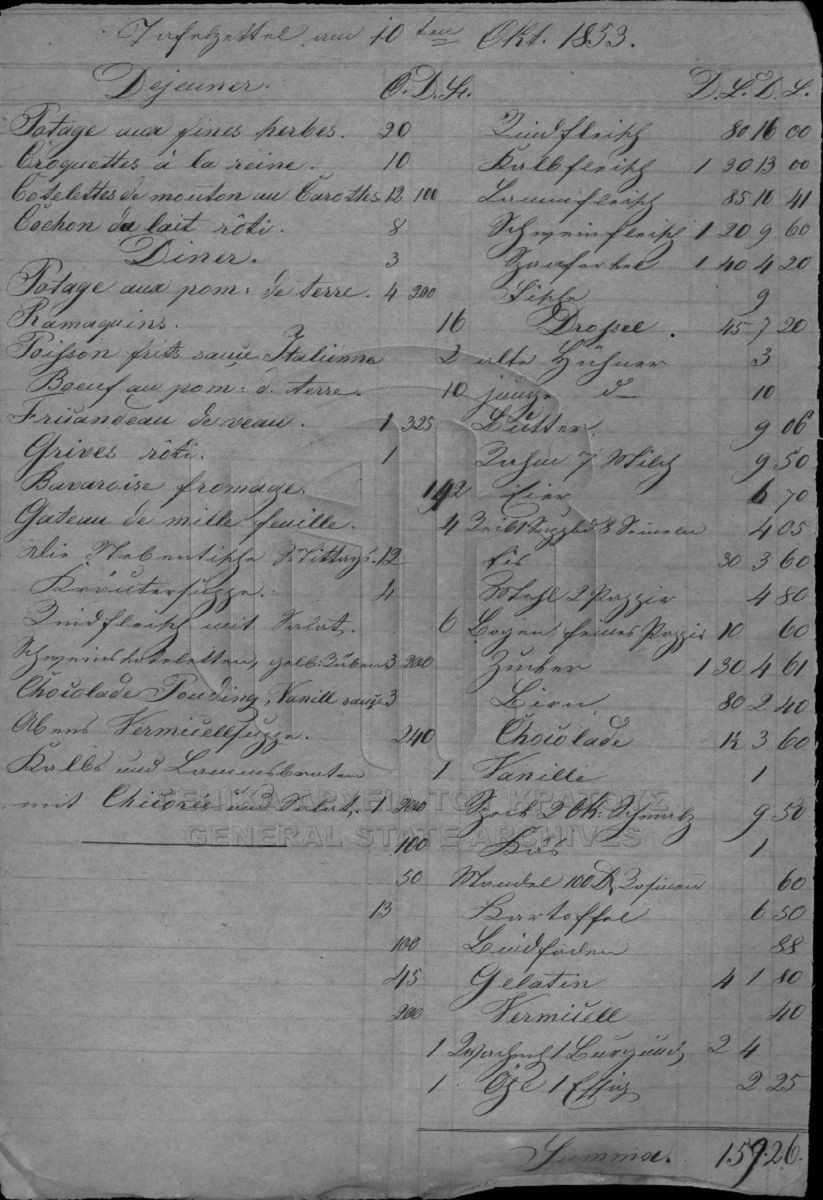 Tafelzettel am 10ten Okt. 1853.
Dejeuner. O. D. St. D. L. D. L.
Potage aux fines herbes. 20 Rindfleisch 80 16 00
Croquettes à la reine. 10 Kalbfleisch 1 30 13 00
Cotelettes de mouton au Carottes 12 100 Lammfleisch 85 10 41
Cochon de lait rôti. 8 Schweinfleisch 1 20 9 60
Diner. 3 Spanferkel 1 40 4 20
Potage aux pom: de terre. 4 200 Fische 9
Ramaquins. 16 Drossel. 45 7 20
Poisson frits sauce Italienne 2 alte Hühner 3
Boeuf au pom: d. terre. 10 junge d— 10
Fricandeau de veau. 1 325 Butter. 9 06
Grives rôti. 1 Rahm 7 Milch 9 50
Bavaroise fromage. 142 Eier 6 70
Gateau de mille feuille. 4 8 Semeln 4 05
Die Nebentische Mittags. 12 Eis 30 3 60
Kräutersuppe. 4 Mehl 2 Pappir 4 80
Rindfleisch mit Salat. 6 Bogen feines Pappir 10 60
Schweinskoteletten, gelb: Rüben 3 200 Zucker 1 30 4 61
Chocolade Pouding, Vanill sauce 3 Birn 80 2 40
Abens Vermicellsuppe. 240 Chocolade ½ 3 60
Kalbs und Lammsbraten 1 Vanille 1
mit Chicorie und Salat. 1 200 Speck 2 Ok: Schmalz 9 50
100 Käs 1
50 Mandel 100 D. Rosinen 60
13 Kartoffel 6 50
100 Bindfaden 88
45 Gelatin 4 1 80
200 Vermicell 40
1 1 Burgund 2 4
1 Öhl 1 Essig 2 25
Summa. 159.26.
ΓΕΝΙΚΑ ΑΡΧΕΙΑ ΤΟΥ ΚΡΑΤΟΥΣ
GENERAL STATE ARCHIVES